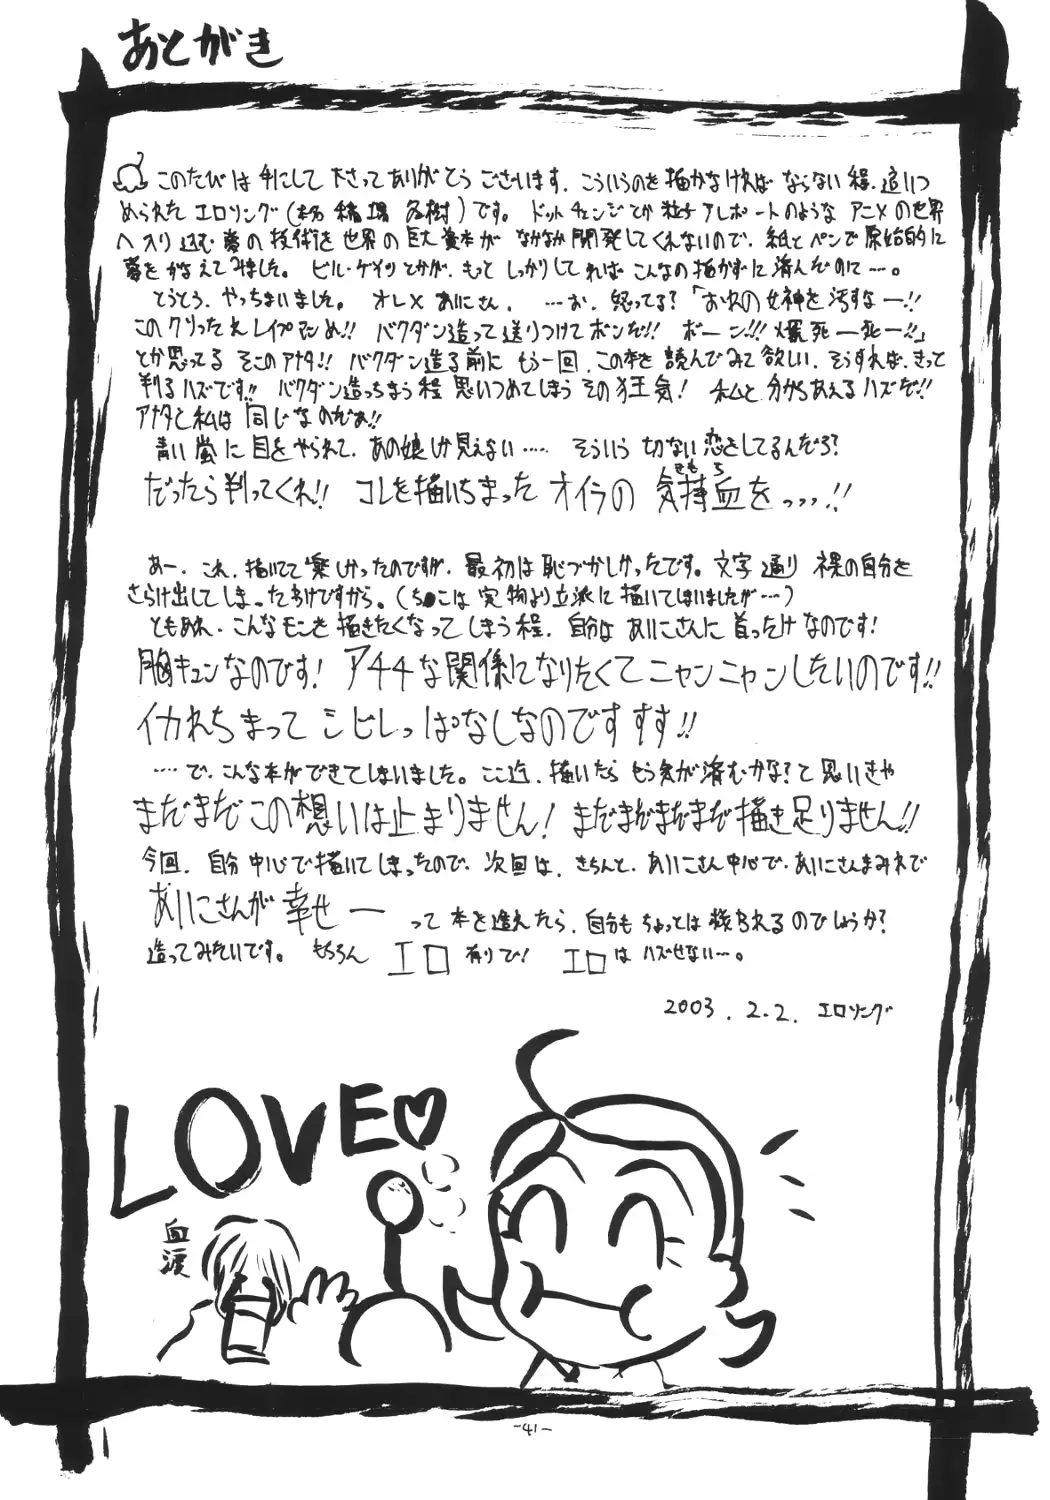 あとがき
このたびは手にして下さってありがとうございます。こういうのを描かなければならない程、追いつ
められたエロソング(本名 稲場 冬樹)です。ドットチェンジとか粒子アレポートのようなアニメの世界
へ入り込む夢の技術を世界の巨大資本がなかなか開発してくれないので、紙とペンで原始的に
夢をかなえてみました。ビル・ゲイツとかが、もっとしっかりしてればこんなの描かずに済んだのに…。
とうとう、やっちまいました。オレ×あにさん。…お、怒ってる?「おれの女神を汚すなー!!
このクソったれレイプマンめ!!バクダン造って送りつけてボンだ!!ボーン!!!爆死ー死ー!!」
とか思ってるそこのアナタ!!バクダン造る前にもう一回、この本を読んでみて欲しい。そうすれば、きっと
判るハズです!!バクダン造っちまう程思いつめてしまうその狂気!私と分かちあえるハズだ!!
アナタと私は同じなのだぁ!!
青い嵐に目をやられて、あの娘しか見えない……そういう切ない恋をしてるんだろ?
だったら判ってくれ!!コレを描いちまったオイラの気持血をっっっ.!!
きもち
あー、これ、描いてて楽しかったのですが、最初は恥づかしかったです。文字通り裸の自分を
さらけ出してしまったわけですから。(ち●こは実物より立派に描いてしまいましたが…)
ともあれ、こんなモンを描きたくなってしまう程、自分はあにさんに首ったけなのです!
胸キュンなのです!アチチな関係になりたくてニャンニャンしたいのです!!
イカれちまってシビレっぱなしなのですすす!!
……で、こんな本ができてしまいました。ここ迄、描いたらもう気が済むかな?と思いきや
まだまだこの想いは止まりません!まだまだまだまだ描き足りません!!
今回、自分中心で描いてしまったので、次回は、きちんと、あにさん中心で、あにさんまみれで
あにさんが幸せーって本を造れたら、自分もちょっとは救われるのでしょうか?
造ってみたいです。もちろんエロ有りで!エロはハズせない…。
2003.2.2.エロソング
LOVE♡
血涙
-41-